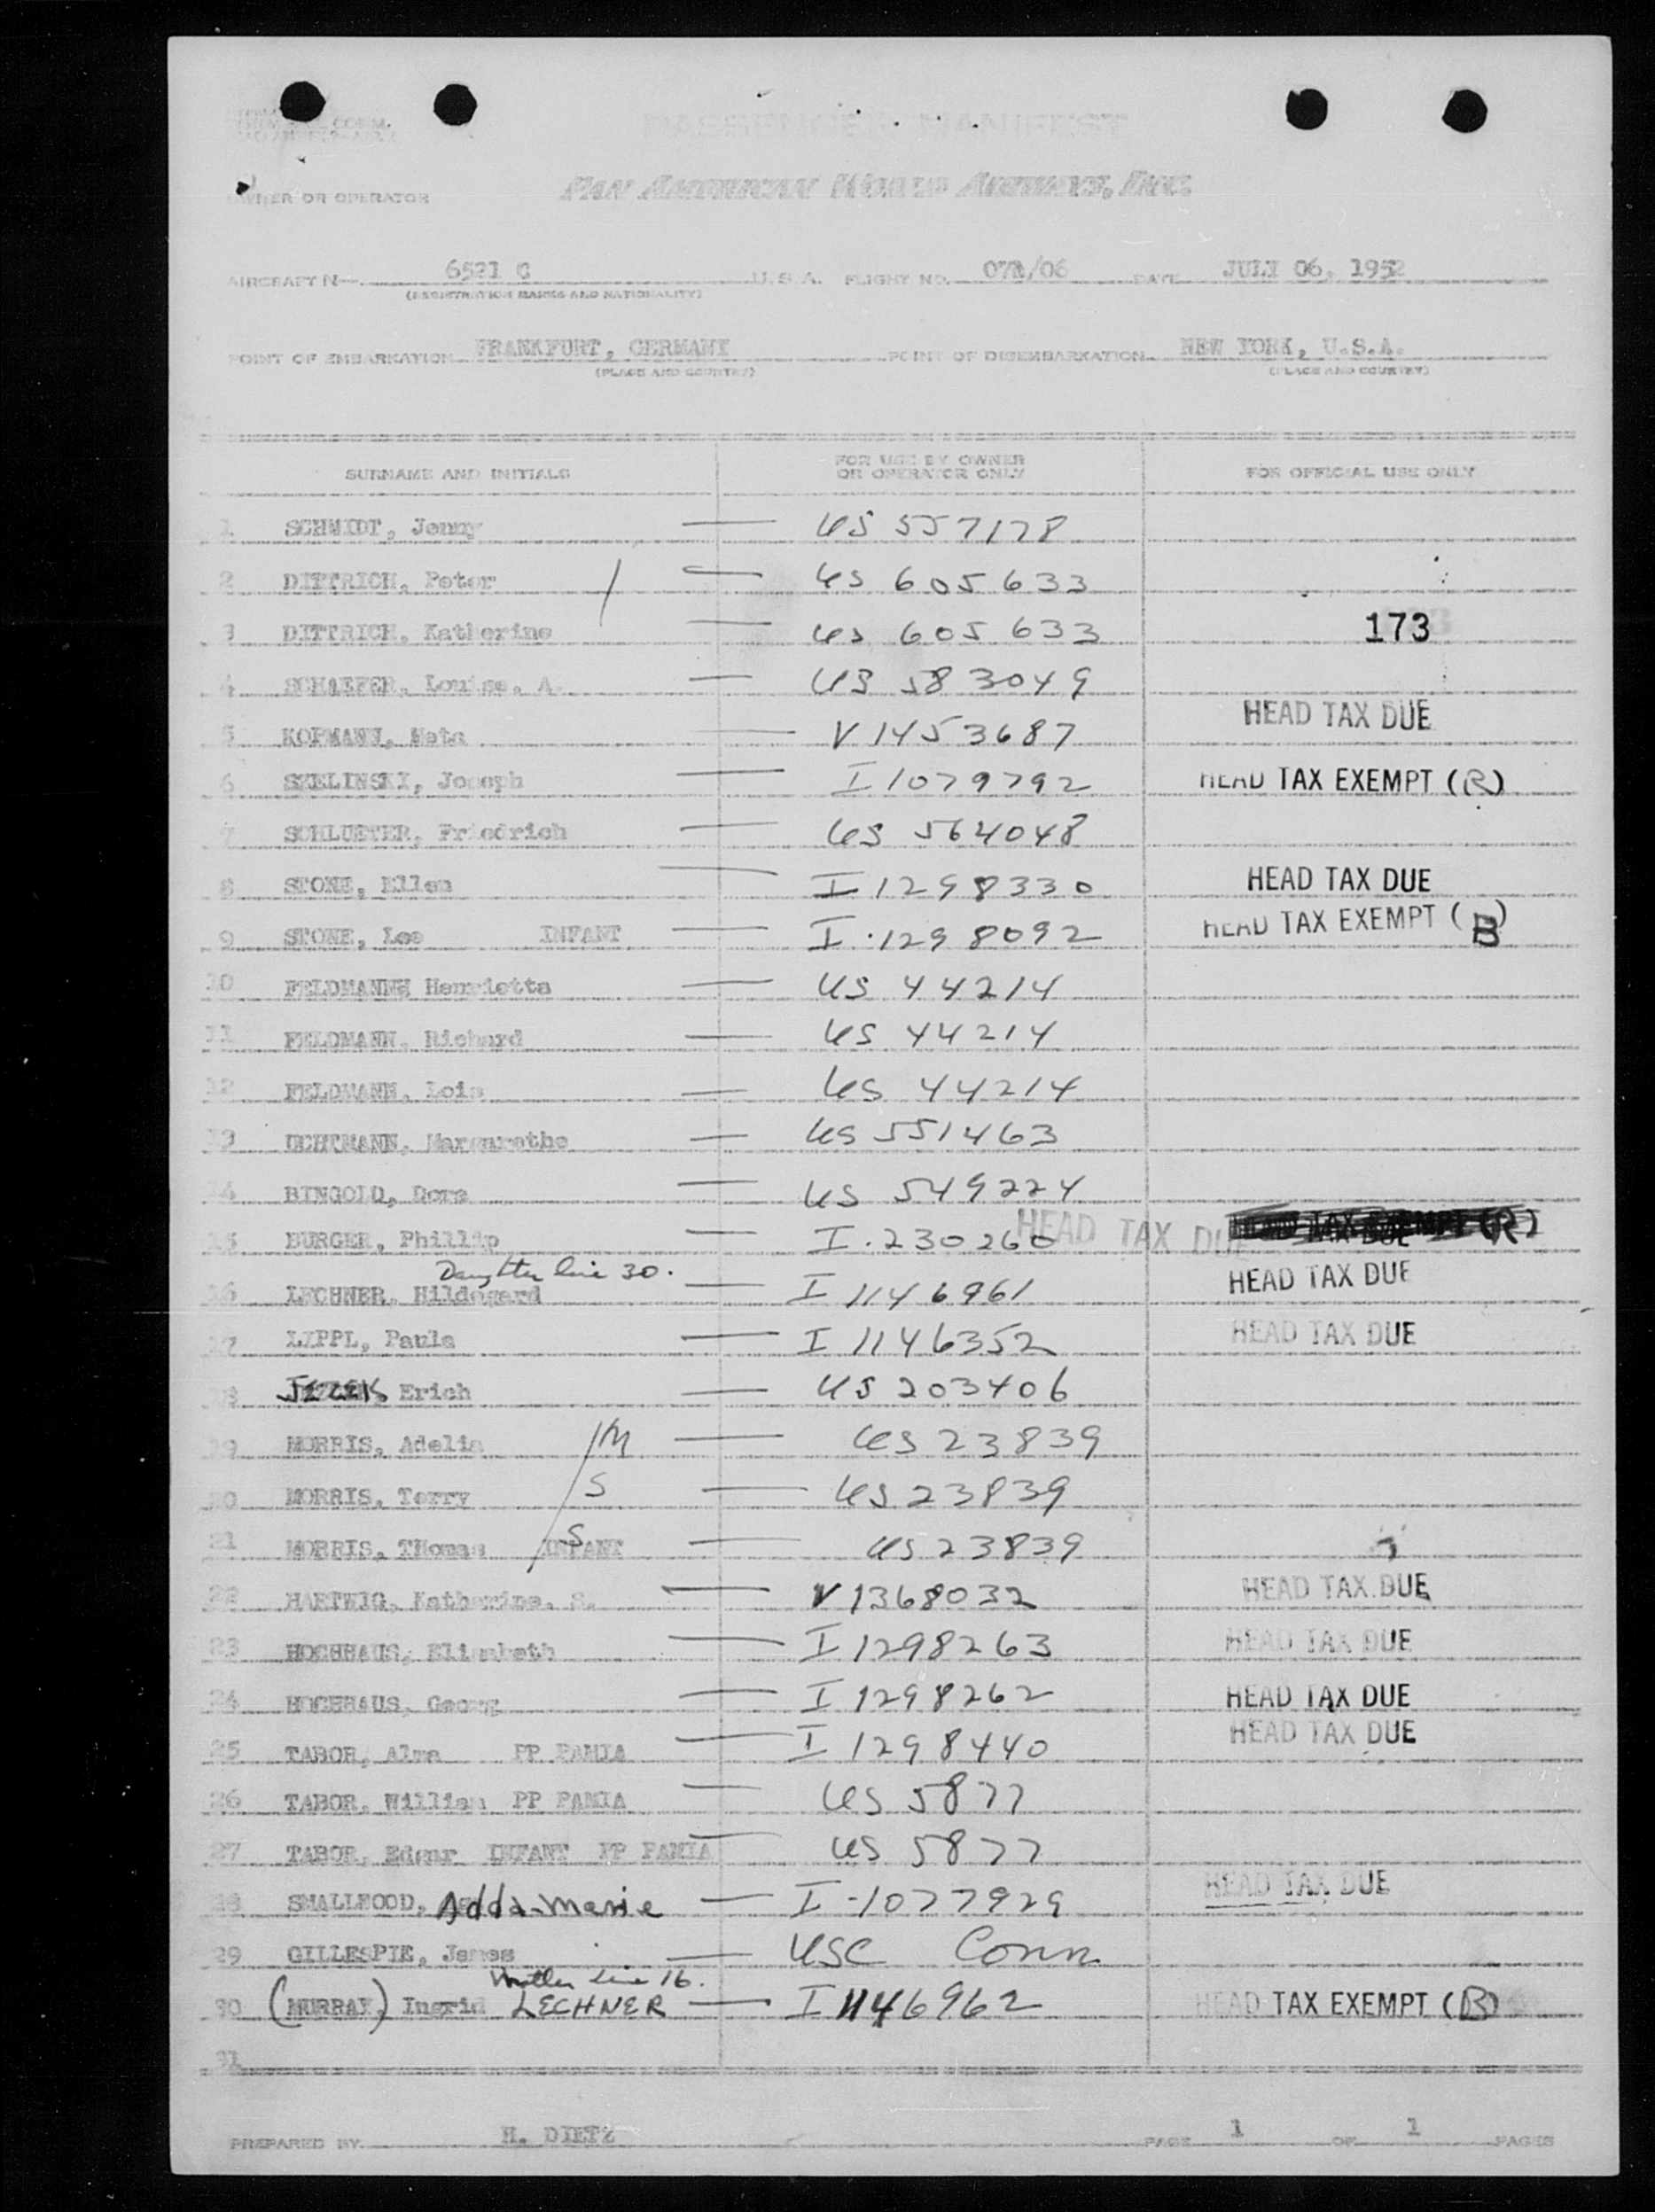 PASSENGER MANIFEST
OWNER OR OPERATOR PAN AMERICAN WORLD AIRWAYS, INC.
AIRCRAFT N— 6521 C U.S.A. FLIGHT NO. 07 /06 DATE JULY 06, 1952
(REGISTRATION MARKS AND NATIONALITY)
POINT OF EMBARKATION FRANKFURT, GERMANY POINT OF DISEMBARKATION NEW YORK, U.S.A.
(PLACE AND COUNTRY) (PLACE AND COUNTRY)
SURNAME AND INITIALS FOR USE BY OWNER OR OPERATOR ONLY FOR OFFICIAL USE ONLY
1 SCHMIDT, Jenny — US 557178
2 DITTRICH, Peter — US 605633
3 DITTRICH, Katherine — US 605633 173
4 SCHAEFER, Louise, A. — US 583049
5 KOPMANN, Meta — V 1453687 HEAD TAX DUE
6 SZELINSKI, Joseph — I 1079792 HEAD TAX EXEMPT (R)
7 SCHLUETER, Friedrich — US 564048
8 STONE, Ellen — I 1298330 HEAD TAX DUE
9 STONE, Lee INFANT — I 1298092 HEAD TAX EXEMPT (B)
10 FELDMANN Henrietta — US 44214
11 FELDMANN, Richard — US 44214
12 FELDMANN, Lois — US 44214
13 UCHTMANN, Margarethe — US 551463
14 BINGOLD, Dora — US 549224
15 BURGER, Phillip — I. 230260 HEAD TAX DUE
Daughter line 30.
16 LECHNER, Hildegard — I 1146961 HEAD TAX DUE
17 LIPPL, Paula — I 1146352 HEAD TAX DUE
18 JEZEK, Erich — US 203406
19 MORRIS, Adelia M — US 23839
20 MORRIS, Terry S — US 23839
21 MORRIS, THomas INFANT S — US 23839
22 HARTWIG, Katherine, S. — V 1368032 HEAD TAX DUE
23 HOCHHAUS, Elisabeth — I 1298263 HEAD TAX DUE
24 HOCHHAUS, Georg — I 1298262 HEAD TAX DUE
25 TABOR, Alma PP PAMIA — I 1298440 HEAD TAX DUE
26 TABOR, William PP PAMIA — US 5877
27 TABOR, Edgar INFANT PP PAMIA — US 5877
28 SMALLWOOD, Adda-Marie — I-1077929 HEAD TAX DUE
29 GILLESPIE, James — USC Conn
Mother line 16.
30 (MURRAY) Ingrid LECHNER — I 1146962 HEAD TAX EXEMPT (B)
31
PREPARED BY H. DIETZ PAGE 1 OF 1 PAGES